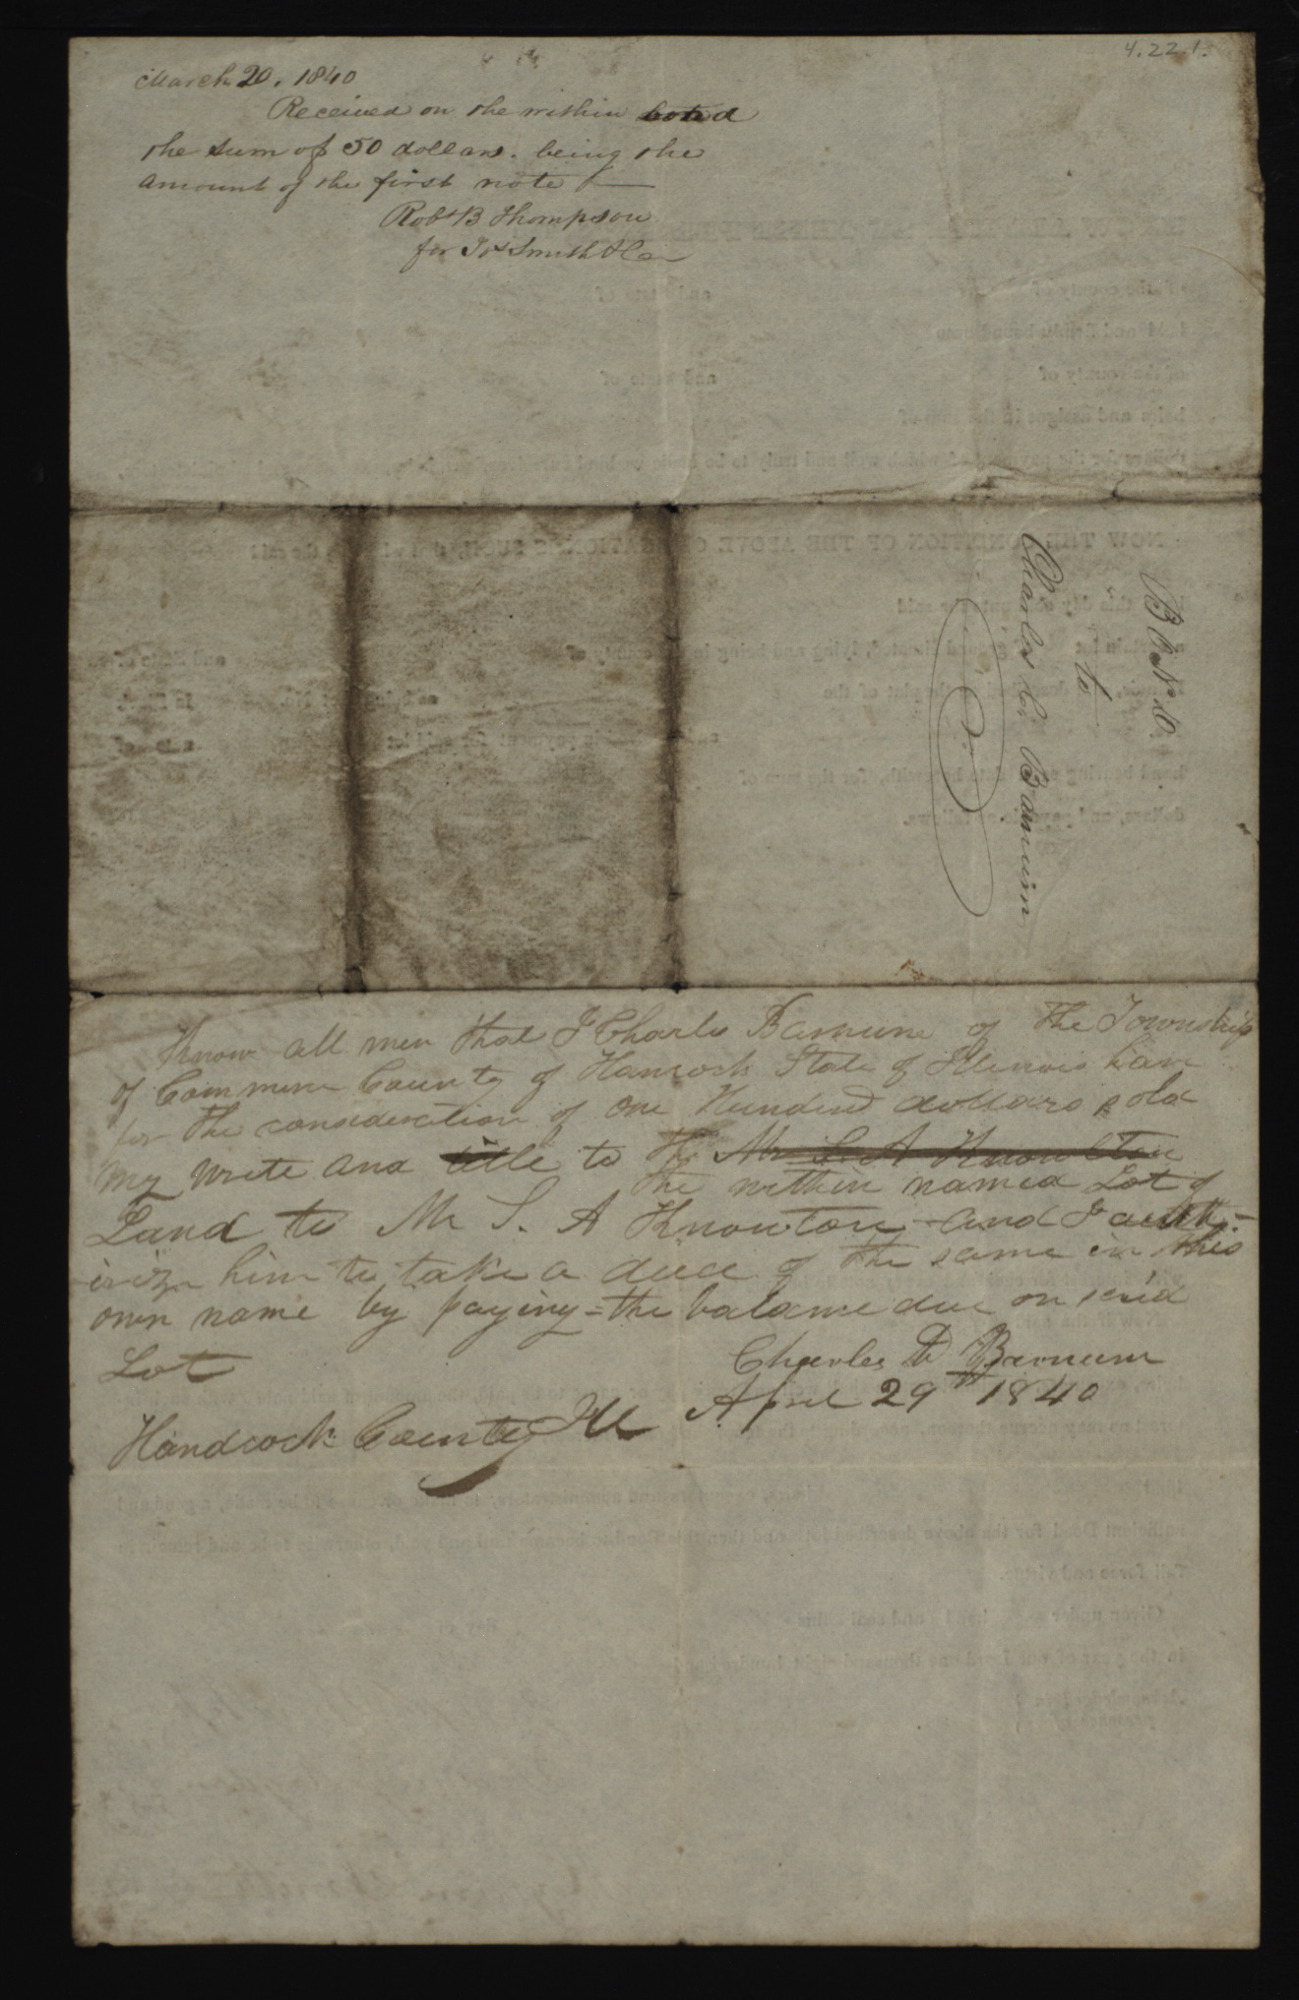 4.22.1.
March 20, 1840
Received on the within bond
the sum of 50 dollars. being the
amount of the first note
Robt B Thompson
for Js Smith & Co
B O No 10.
to
Charles D. Barnum
D.
Know all men that I Charles Barnum of The Township
of Commerce County of Hancock State of Illinois have
for the consideration of one Hundred dollars sold
my write and title to the Mr S. A Knowlton
the within named Lot of
Land to Mr S. A Knowton and I auth-
irize him to take a deed of the same in this
own name by paying the balance due on said
Lot
Charles D Barnum
April 29th 1840
Handcock County Ill